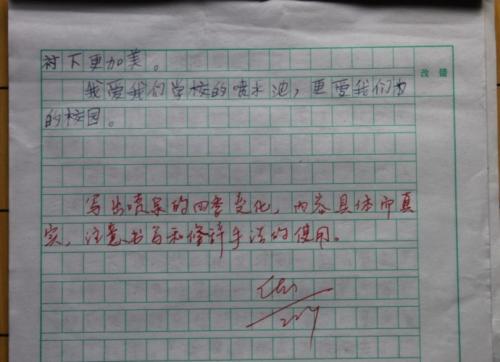 衬下更加美。
改错
我爱我们学校的喷水池，更爱我们
的校园。
写出喷泉的四季变化，内容具体而真
实，注意书写和修辞手法的使用。